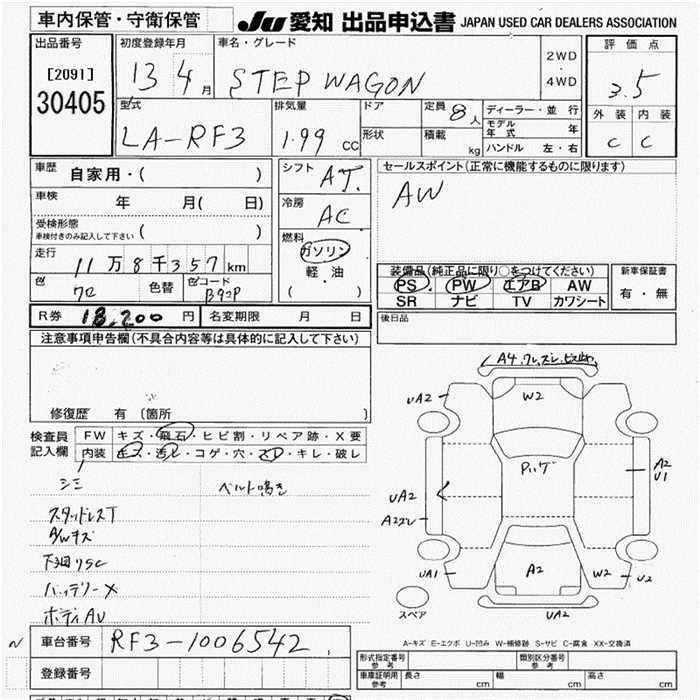 車内保管・守衛保管
JU 愛知 出品申込書 JAPAN USED CAR DEALERS ASSOCIATION
出品番号
[2091]
30405
初度登録年月
13 4 月
車名・グレード
STEP WAGON
2WD
・
4WD
評価点
3.5
外装 内装
C C
型式
LA-RF3
排気量
1.99 cc
ドア
形状
定員 8 人
積載 kg
ディーラー・並行
モデル年式 年
ハンドル 左・右
車歴
自家用・( )
車検 年 月( 日)
受検形態
車検付きのみ記入して下さい ( )
走行
11万8千357 km
色
クロ
色替
色コード
B92P
シフト AT.
冷房 AC
燃料
ガソリン
・
軽・油
( )
セールスポイント(正常に機能するものに限ります)
AW
装備品(純正品に限り○をつけてください)
PS PW エアB AW
SR ナビ TV カワシート
新車保証書
有・無
R券 18,200 円 名変期限 月 日
後日品
注意事項申告欄(不具合内容等は具体的に記入して下さい)
修復歴 有 〔箇所 〕
検査員
記入欄
FW キズ・飛石・ヒビ割・リペア跡・X要
内装 キズ・汚レ・コゲ・穴・スレ・キレ・破レ
シミ ベルト鳴き
スタッドレスT
A/Wキズ
下回りSC
バッテリーX
ボディAU
A4
UA2 W2
A2
U1
UA2
UA1 A2 W2 U2
スペア UA2
A-キズ E-エクボ U-凹み W-補修跡 S-サビ C-腐食 XX-交換済
N 車台番号 RF3-1006542
登録番号
形式指定番号
参考
類別区分番号
参考
車庫証明用
参考
長さ cm 幅 cm 高さ cm